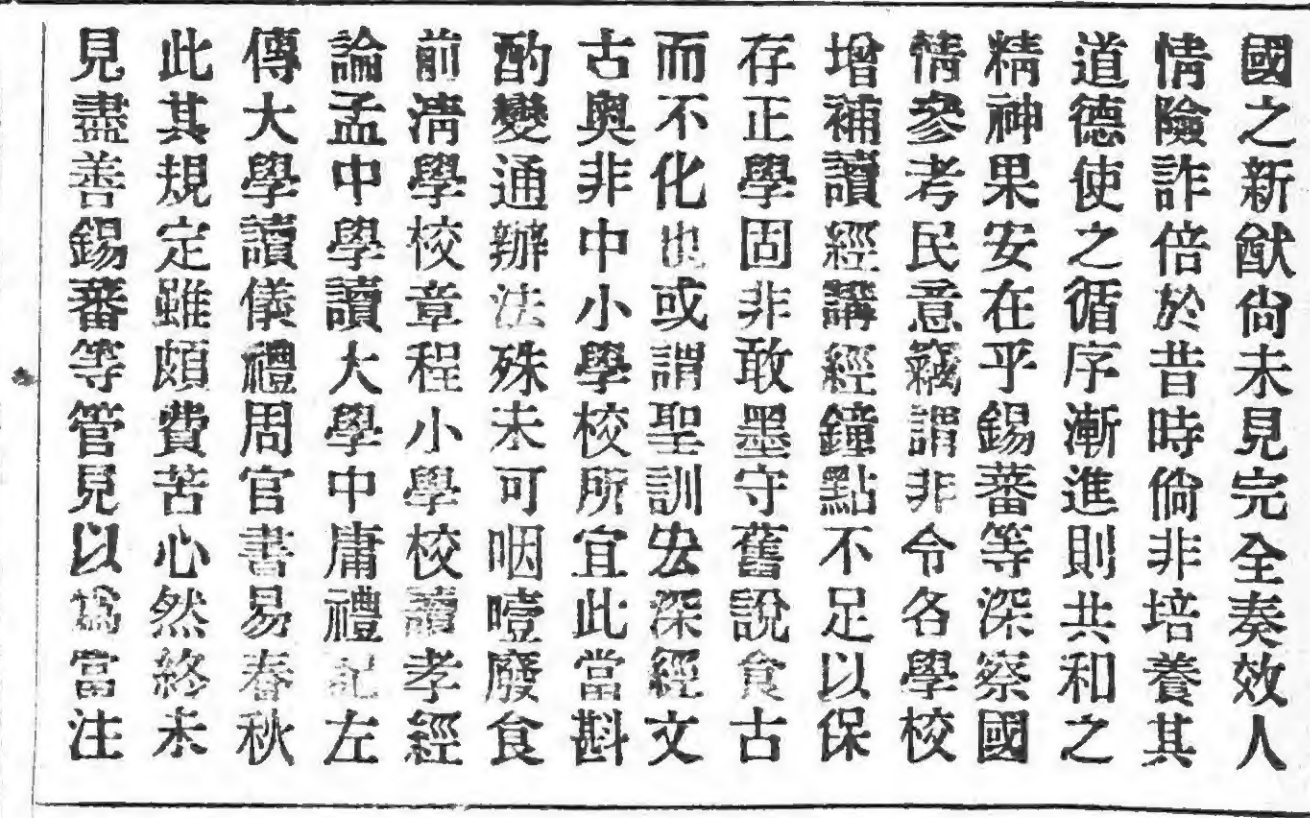 國之新猷尙未見完全奏效人
情險詐倍於昔時倘非培養其
道德使之循序漸進則共和之
精神果安在乎錫蕃等深察國
情參考民意竊謂非令各學校
增補讀經講經鐘點不足以保
存正學固非敢墨守舊說食古
而不化也或謂聖訓宏深經文
古奧非中小學校所宜此當斟
酌變通辦法殊未可咽噎廢食
前淸學校章程小學校讀孝經
論孟中學讀大學中庸禮記左
傳大學讀儀禮周官書易春秋
此其規定雖頗費苦心然終未
見盡善錫蕃等管見以爲當注